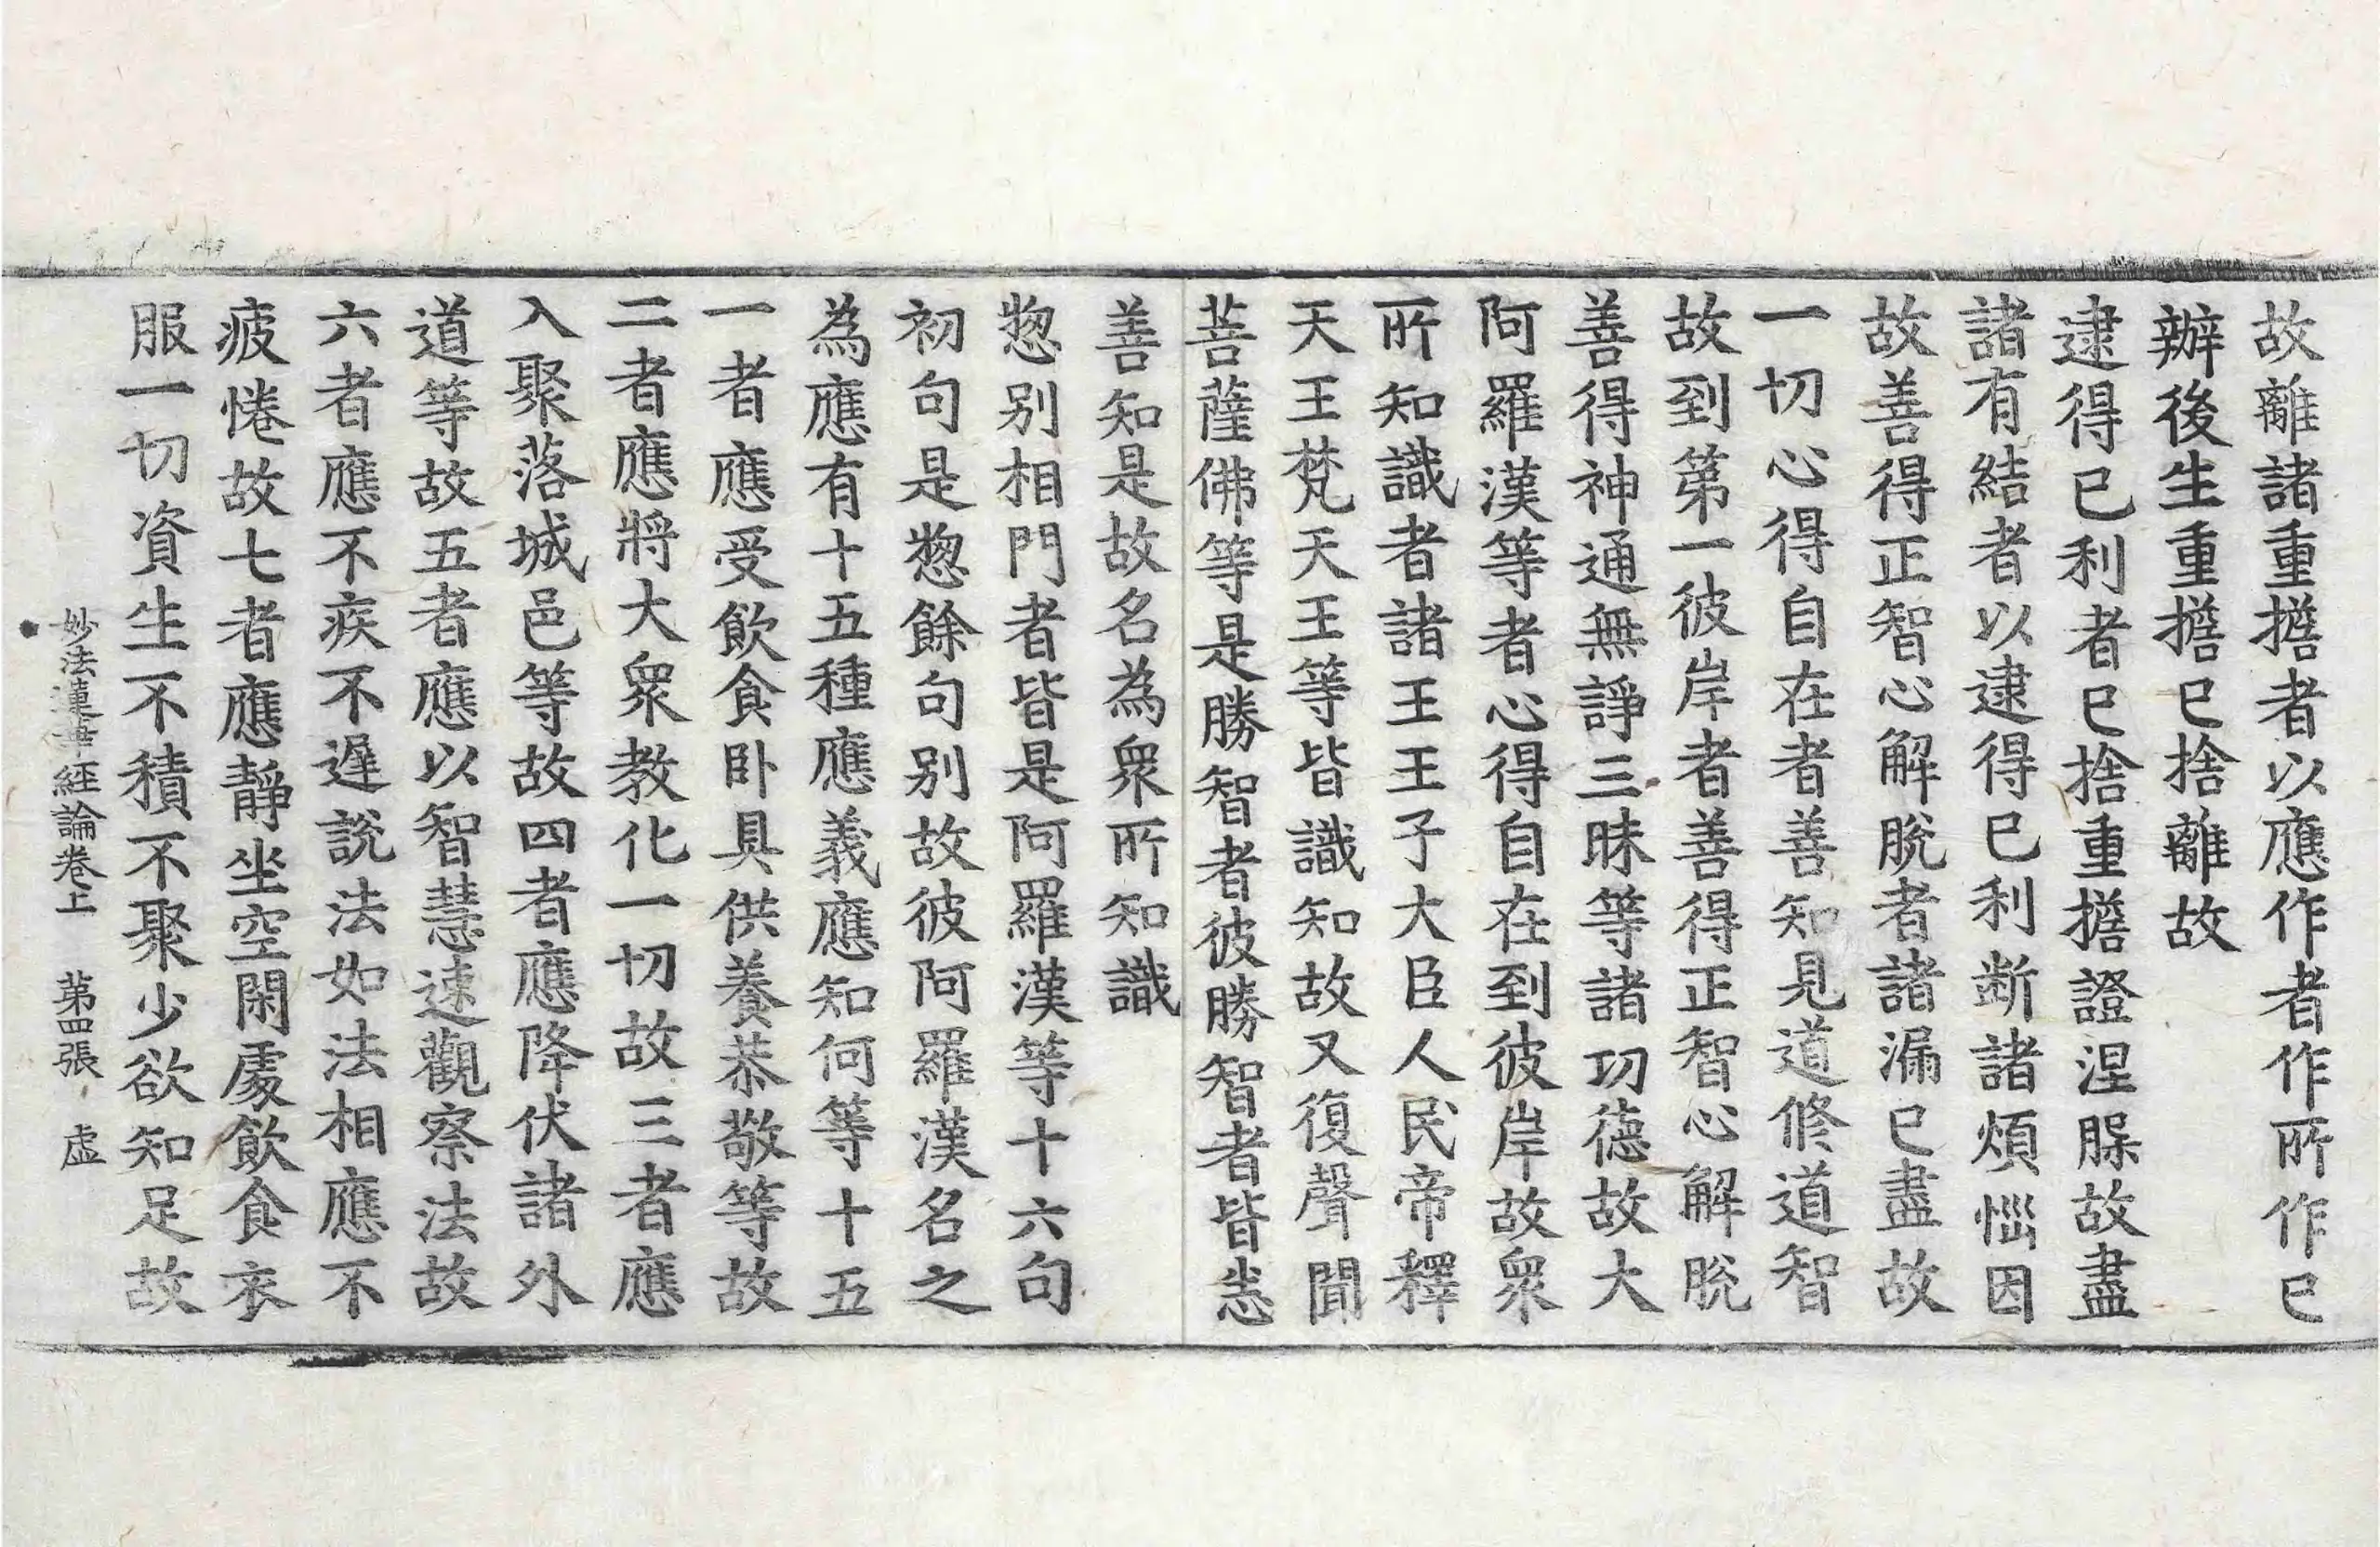 故離諸重擔者以應作者作所作已
辦後生重擔已捨離故
逮得已利者已捨重擔證涅脲故盡
諸有結者以逮得已利斷諸煩惱因
故善得正智心解脫者諸漏已盡故
一切心得自在者善知見道修道智
故到第一彼岸者善得正智心解脫
善得神通無諍三昧等諸功德故大
阿羅漢等者心得自在到彼岸故衆
所知識者諸王王子大臣人民帝釋
天王梵天王等皆識知故又復聲聞
菩薩佛等是勝智者彼勝智者皆悉
善知是故名為衆所知識
惣別相門者皆是阿羅漢等十六句
初句是惣餘句別故彼阿羅漢名之
為應有十五種應義應知何等十五
一者應受飲食卧具供養恭敬等故
二者應將大衆教化一切故三者應
入聚落城邑等故四者應降伏諸外
道等故五者應以智慧速觀察法故
六者應不疾不遲說法如法相應不
疲惓故七者應靜坐空閑處飲食衣
服一切資生不積不聚少欲知足故
妙法蓮華經論卷上 第四張 虛